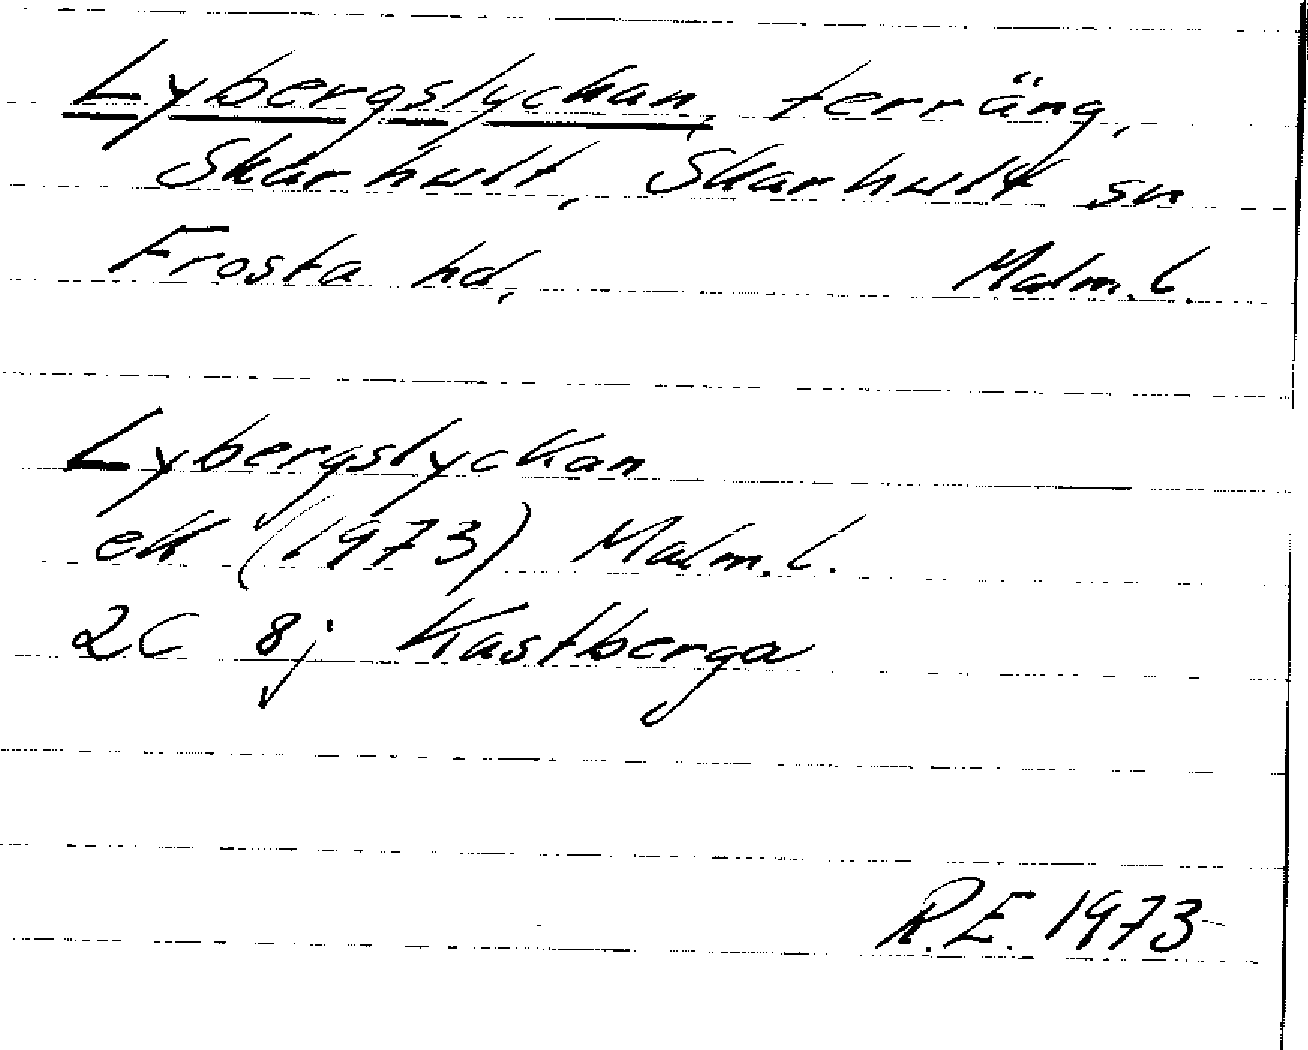 Lybergslyckan, terräng,
Skarhult, Skarhult sn
Frosta hd, Malm. l.
Lybergslyckan
ek (1973) Malm. l.
2C 8j Kastberga
R.E. 1973